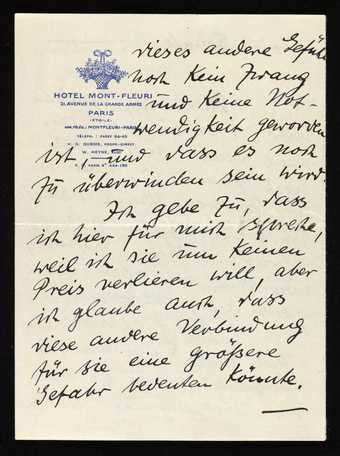 dieses andere Gefühl
noch kein Zwang
und keine Not-
wendigkeit geworden
ist, und dass es noch
zu überwinden sein wird.
Ich gebe zu, dass
ich hier für mich spreche,
weil ich sie um keinen
Preis verlieren will, aber
ich glaube auch, dass
diese andere Verbindung
für sie eine größere
Gefahr bedeuten könnte.
HOTEL MONT-FLEURI
21, AVENUE DE LA GRANDE ARMÉE
PARIS
(ETOILE)